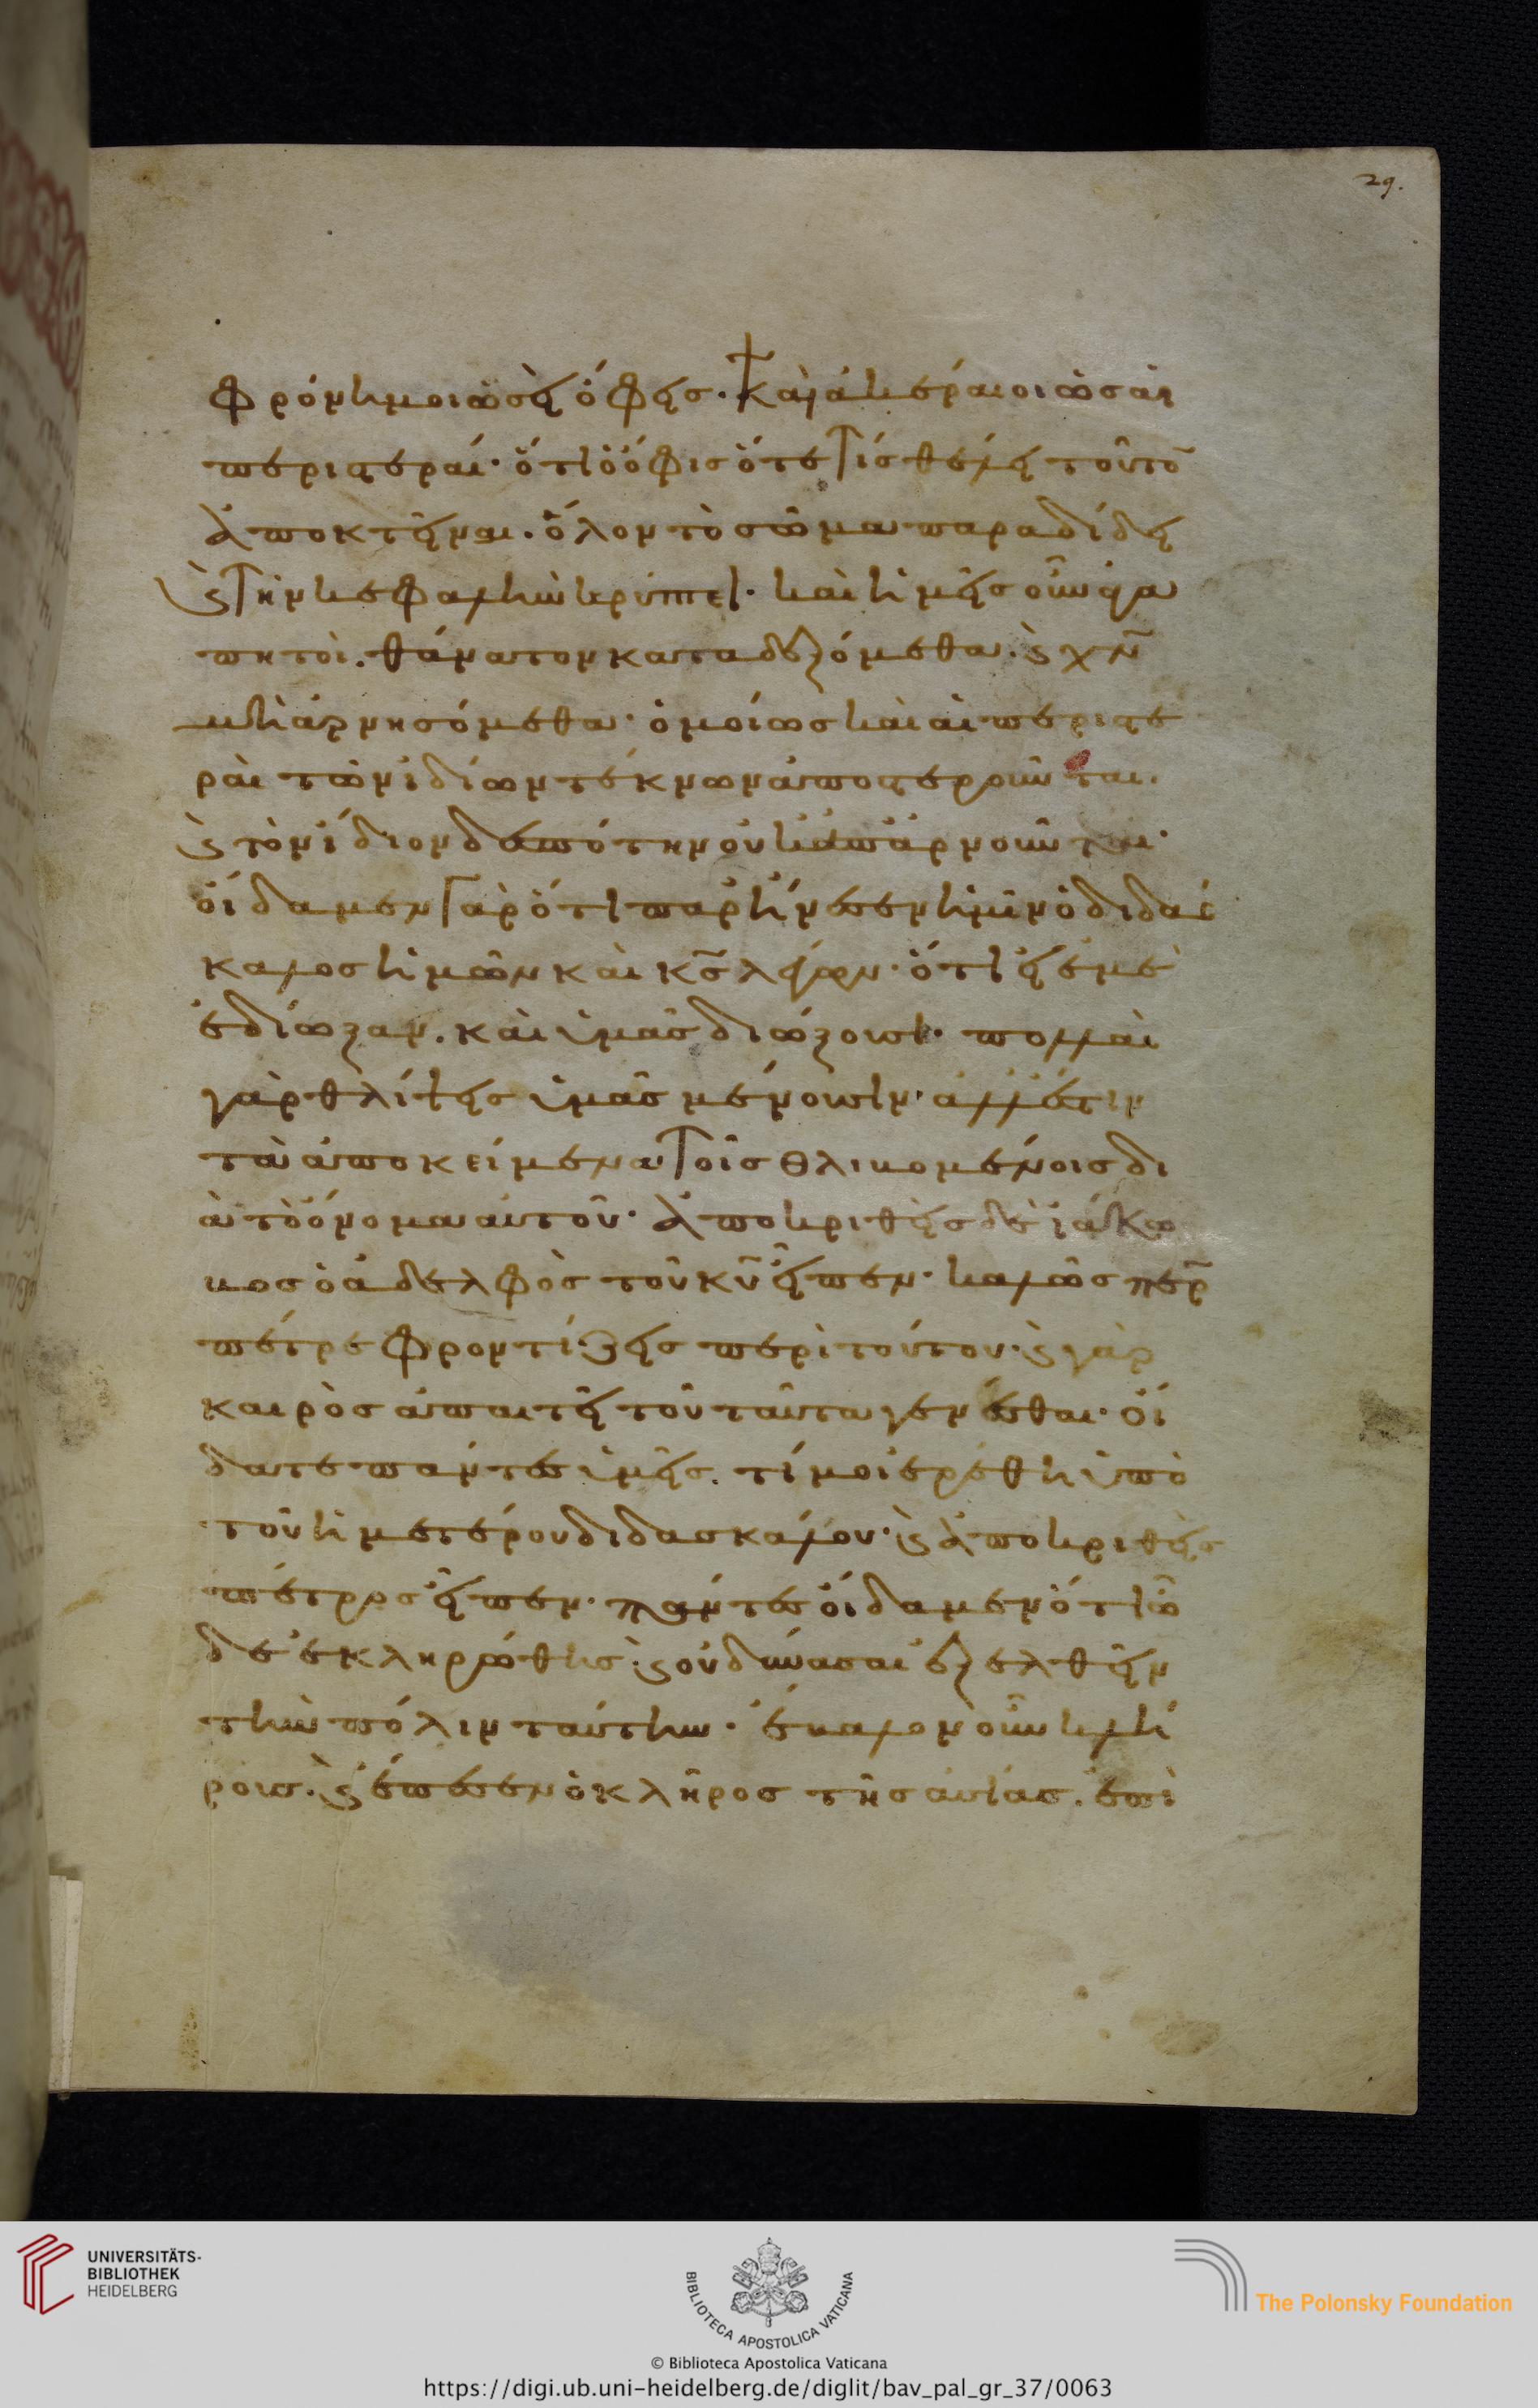 29.
φρόνημοι ὡσεὶ ὄφεις. καὶ ἀκέραιοι ὡσαὶ
περιστεραί· ὅτι ὁ ὄφις ὅτε τίς θέλει τοῦτο
ἀποκτεῖναι. ὅλον τὸ σῶμα παραδίδει
ϗ τὴν κεφαλὴν κρύπτει. καὶ ἡμεῖς οὖν ἀγα
πητοὶ. θάνατον καταδεξόμεθα. ϗ χν̄
μὴ ἀρνησόμεθα· ὁμοίως καὶ αἱ περιστε
ραὶ τῶν ἰδίων τέκνων ἀποστεροῦνται.
ϗ τὸν ἴδιον δεσπότην οὐκ ἀπαρνοῦνται·
οἴδαμεν γὰρ ὅτι παρήνεσεν ἡμῖν ὁ διδάσ
καλος ἡμῶν καὶ κς̄ λέγων· ὅτι εἰ ἐμὲ
ἐδίωξαν. καὶ ὑμᾶς διώξουσι· πολλαὶ
γὰρ θλίψεις ὑμᾶς μένουσιν· ἀλλ' ἔστιν
τὰ ἀποκείμενα τοῖς θλιβομένοις δι
ὰ τὸ ὄνομα αὐτοῦ. ἀποκριθεὶς δὲ ἰάκω
βος ὁ ἀδελφὸς τοῦ κῡ εἶπεν· καλῶς περ̄
πέτρε φροντίζεις περὶ τούτου· ϗ γὰρ
καιρὸς ἀπαιτεῖ τοῦ ταῦτα γενέσθαι· οἴ
δατε πάντες ὑμεῖς. τί μοι ἐρέθη ὑπὸ
τοῦ ἡμετέρου διδασκάλου· ϗ ἀποκριθεὶς
πέτρος εἶπεν· πάντες οἴδαμεν ὅτι ὧ
δε ἐκληρώθης. ϗ οὐ δύνασαι ἐξελθεῖν
τὴν πόλιν ταύτην. ἔβαλον οὖν κλή
ρους. ϗ ἔπεσεν ὁ κλῆρος τῆς ἀσίας. ἐπὶ
UNIVERSITÄTS-
BIBLIOTHEK
HEIDELBERG
BIBLIOTECA APOSTOLICA VATICANA
The Polonsky Foundation
© Biblioteca Apostolica Vaticana
https://digi.ub.uni-heidelberg.de/diglit/bav_pal_gr_37/0063